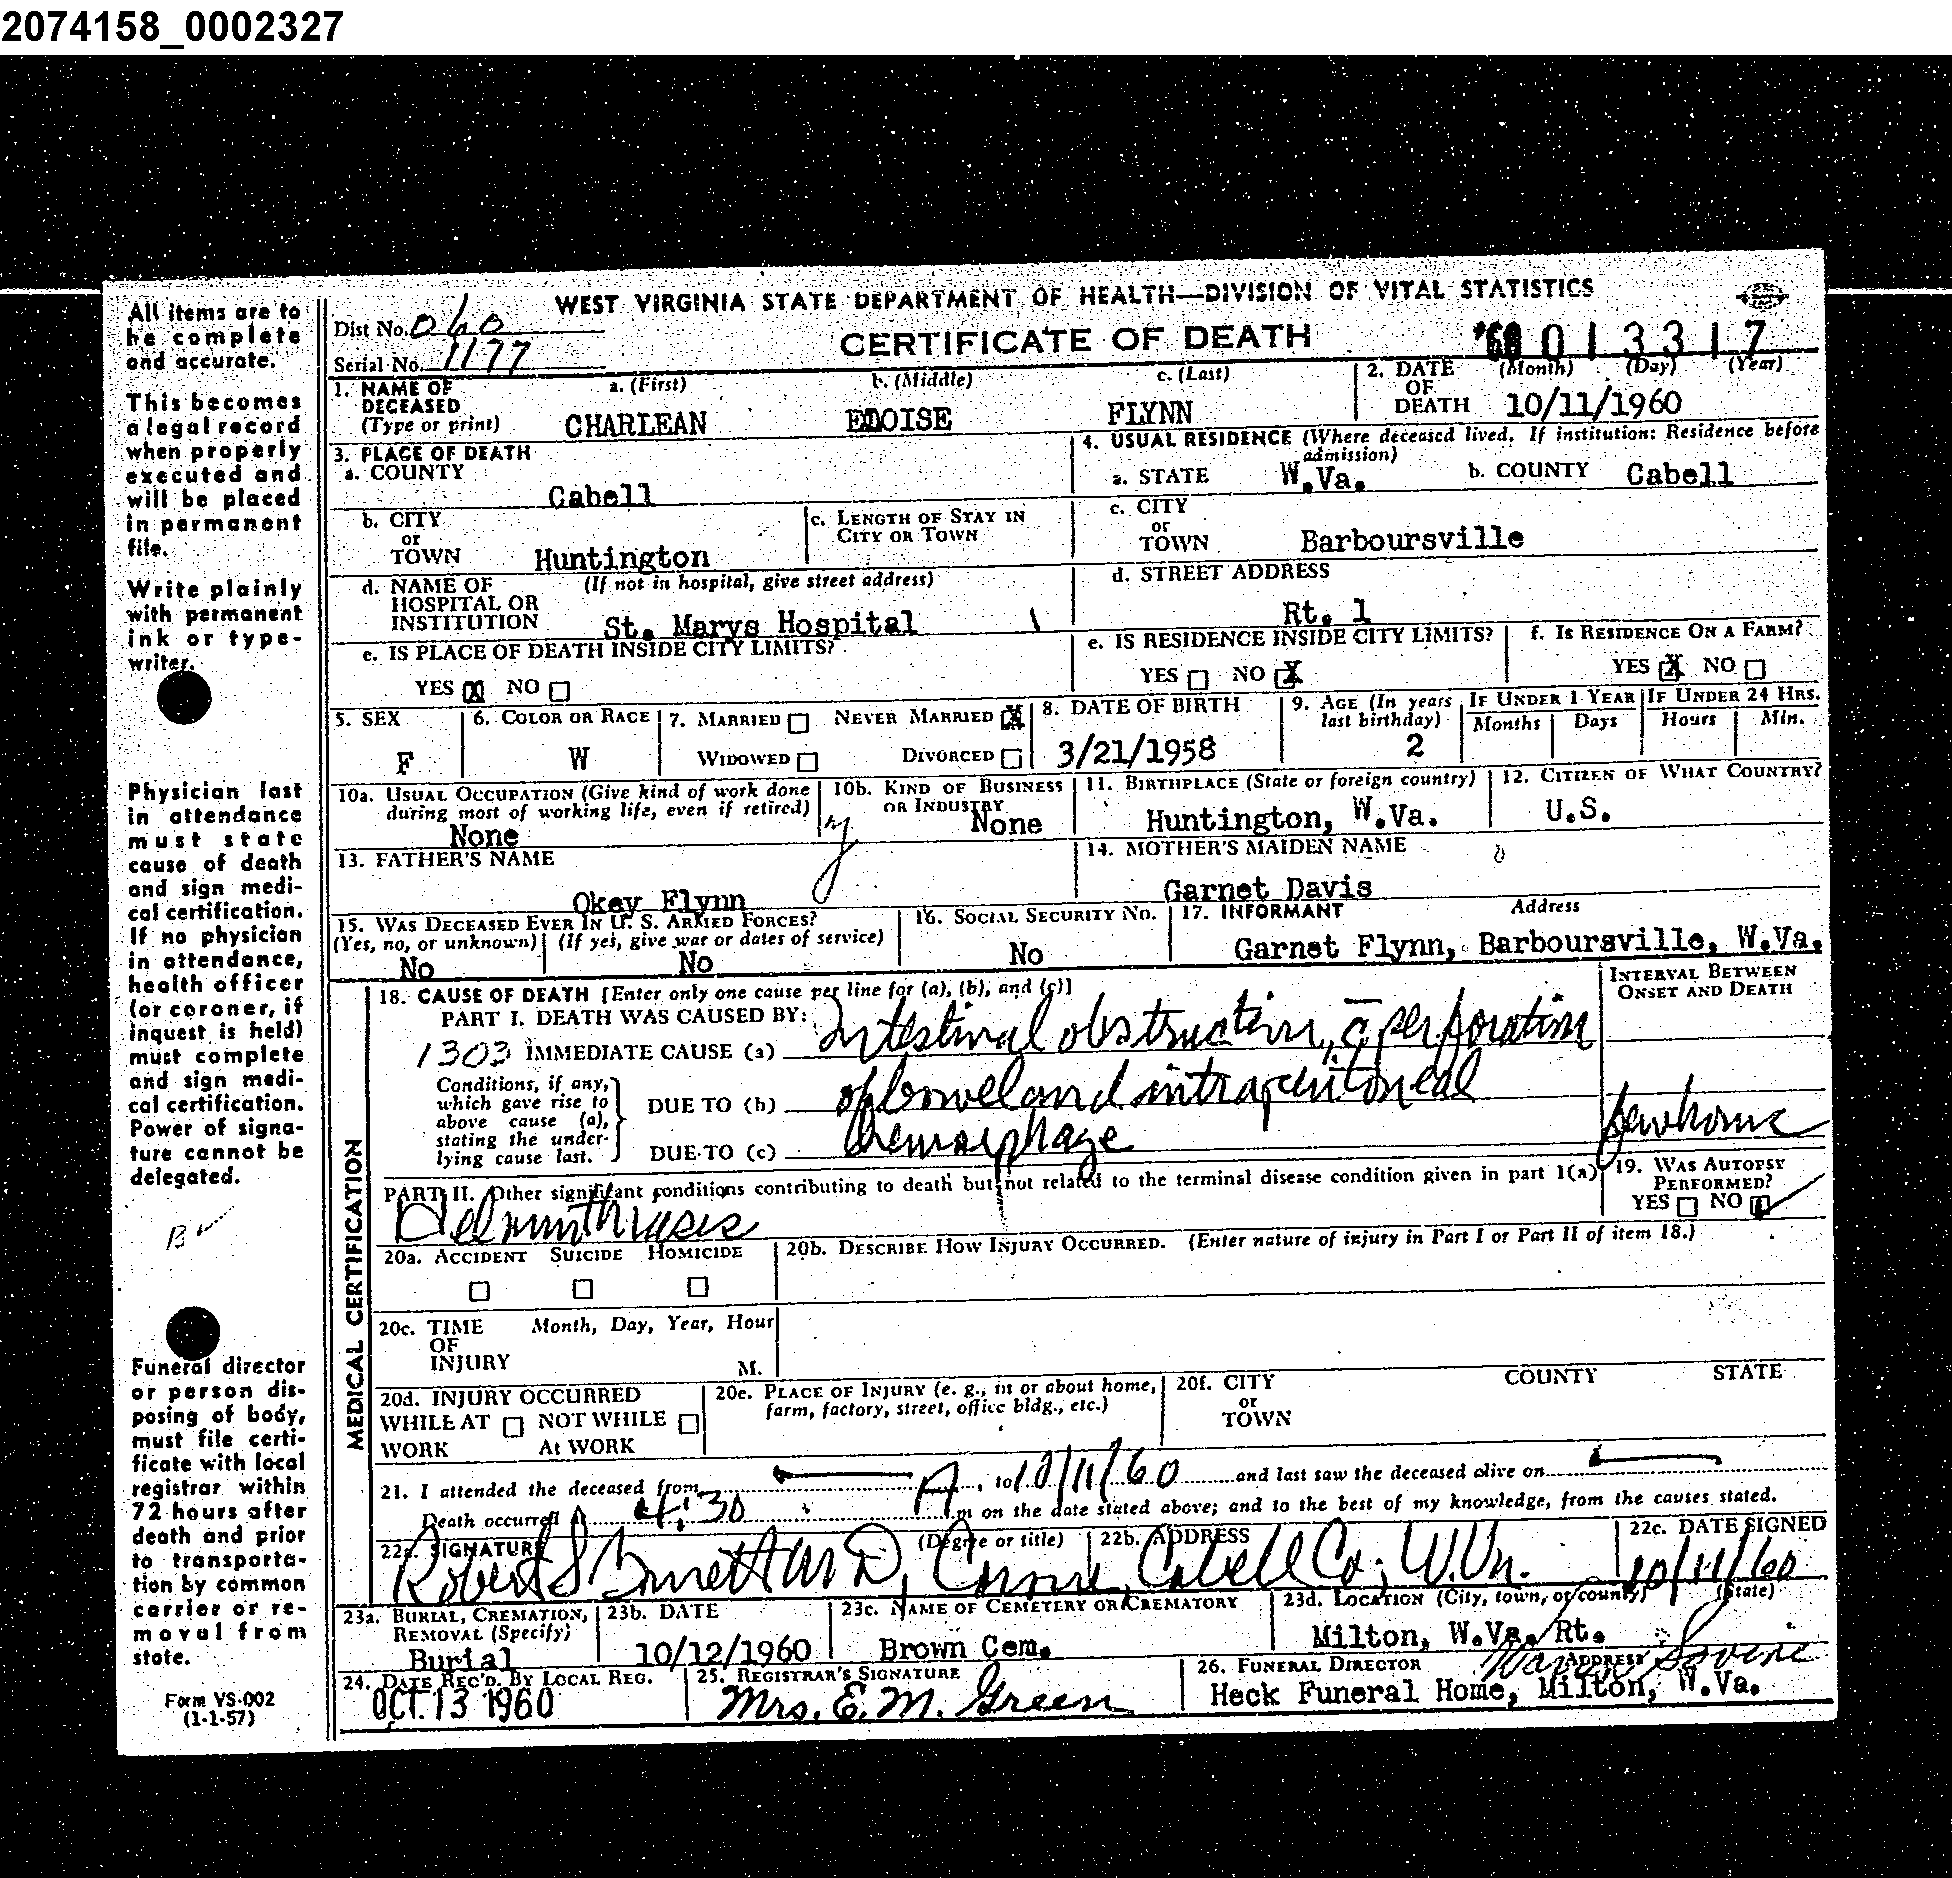 2074158_0002327
All items are to
be complete
and accurate.
This becomes
a legal record
when properly
executed and
will be placed
in permanent
file.
Write plainly
with permanent
ink or type-
writer.
Physician last
in attendance
must state
cause of death
and sign medi-
cal certification.
If no physician
in attendance,
health officer
(or coroner, if
inquest is held)
must complete
and sign medi-
cal certification.
Power of signa-
ture cannot be
delegated.
Funeral director
or person dis-
posing of body,
must file certi-
ficate with local
registrar within
72 hours after
death and prior
to transporta-
tion by common
carrier or re-
moval from
state.
Form VS-002
(1-1-57)
WEST VIRGINIA STATE DEPARTMENT OF HEALTH—DIVISION OF VITAL STATISTICS
Dist No. 060
CERTIFICATE OF DEATH 013317
Serial No. 1177
1. NAME OF DECEASED (Type or print) a. (First) b. (Middle) c. (Last) 2. DATE OF DEATH (Month) (Day) (Year)
CHARLEAN ELOISE FLYNN 10/11/1960
3. PLACE OF DEATH 4. USUAL RESIDENCE (Where deceased lived. If institution: Residence before admission)
a. COUNTY Cabell a. STATE W.Va. b. COUNTY Cabell
b. CITY or TOWN Huntington c. LENGTH OF STAY IN CITY OR TOWN c. CITY or TOWN Barboursville
d. NAME OF HOSPITAL OR INSTITUTION (If not in hospital, give street address) St. Marys Hospital d. STREET ADDRESS Rt. 1
e. IS PLACE OF DEATH INSIDE CITY LIMITS? e. IS RESIDENCE INSIDE CITY LIMITS? f. IS RESIDENCE ON A FARM?
YES X NO YES NO X YES X NO
5. SEX 6. COLOR OR RACE 7. MARRIED NEVER MARRIED X 8. DATE OF BIRTH 9. AGE (In years last birthday) IF UNDER 1 YEAR IF UNDER 24 HRS.
Months Days Hours Min.
F W WIDOWED DIVORCED 3/21/1958 2
10a. USUAL OCCUPATION (Give kind of work done during most of working life, even if retired) 10b. KIND OF BUSINESS OR INDUSTRY 11. BIRTHPLACE (State or foreign country) 12. CITIZEN OF WHAT COUNTRY?
None None Huntington, W.Va. U.S.
13. FATHER'S NAME 14. MOTHER'S MAIDEN NAME
Okey Flynn Garnet Davis
15. WAS DECEASED EVER IN U. S. ARMED FORCES? 16. SOCIAL SECURITY NO. 17. INFORMANT Address
(Yes, no, or unknown) (If yes, give war or dates of service)
No No No Garnet Flynn, Barboursville, W.Va.
MEDICAL CERTIFICATION
18. CAUSE OF DEATH [Enter only one cause per line for (a), (b), and (c)] INTERVAL BETWEEN ONSET AND DEATH
PART I. DEATH WAS CAUSED BY:
1303 IMMEDIATE CAUSE (a) Intestinal obstruction, c̄ perforation
Conditions, if any, which gave rise to above cause (a), stating the underlying cause last.
DUE TO (b) of bowel and intraperitoneal
DUE TO (c) hemorphage few hours
PART II. Other significant conditions contributing to death but not related to the terminal disease condition given in part 1(a) 19. WAS AUTOPSY PERFORMED?
Helminthiasis YES NO
20a. ACCIDENT SUICIDE HOMICIDE 20b. DESCRIBE HOW INJURY OCCURRED. (Enter nature of injury in Part I or Part II of item 18.)
20c. TIME OF INJURY Month, Day, Year, Hour M.
20d. INJURY OCCURRED 20e. PLACE OF INJURY (e. g., in or about home, farm, factory, street, office bldg., etc.) 20f. CITY or TOWN COUNTY STATE
WHILE AT WORK NOT WHILE At WORK
21. I attended the deceased from , to 10/11/60 and last saw the deceased alive on
Death occurred at 4:30 A m on the date stated above; and to the best of my knowledge, from the causes stated.
22a. SIGNATURE (Degree or title) 22b. ADDRESS 22c. DATE SIGNED
Robert S Barrett M D, Coroner, Cabell Co; W.Va. 10/11/60
23a. BURIAL, CREMATION, REMOVAL (Specify) 23b. DATE 23c. NAME OF CEMETERY OR CREMATORY 23d. LOCATION (City, town, or county) (State)
Burial 10/12/1960 Brown Cem. Milton, W.Va. Rt.
24. DATE REC'D. BY LOCAL REG. 25. REGISTRAR'S SIGNATURE 26. FUNERAL DIRECTOR ADDRESS
OCT 13 1960 Mrs. E. M. Green Heck Funeral Home, Milton, W.Va.